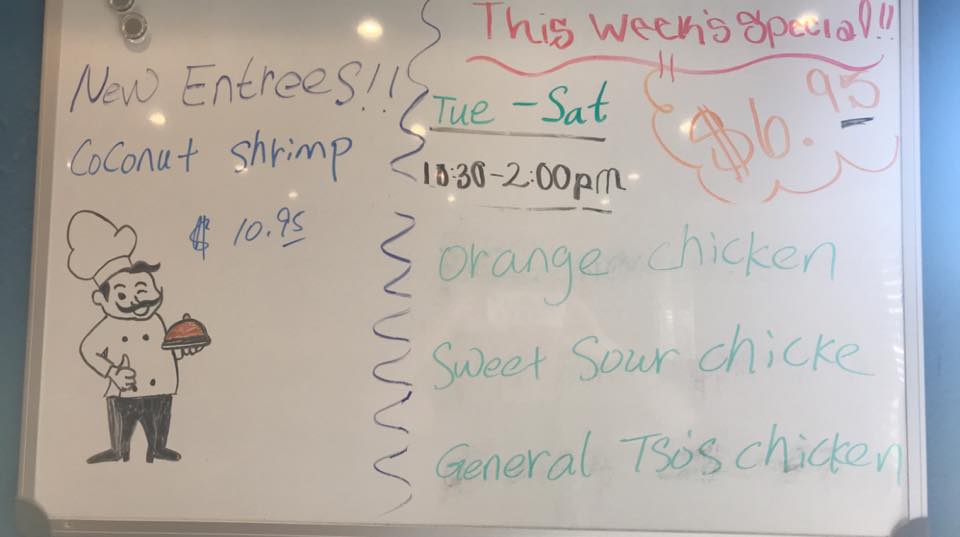 New Entrees!!
Coconut shrimp
$ 10.95
This Week's Special!!
Tue - Sat
$6.95
10:30-2:00pm
Orange chicken
Sweet Sour chicke
General Tso's chicken